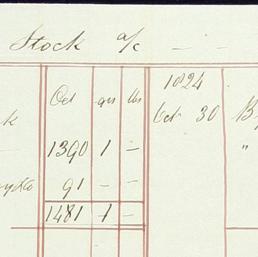 Stock a/c — —
1824
Cwt qrs lbs
Oct 30
1390 1 —
"
91 — —
1481 1 —